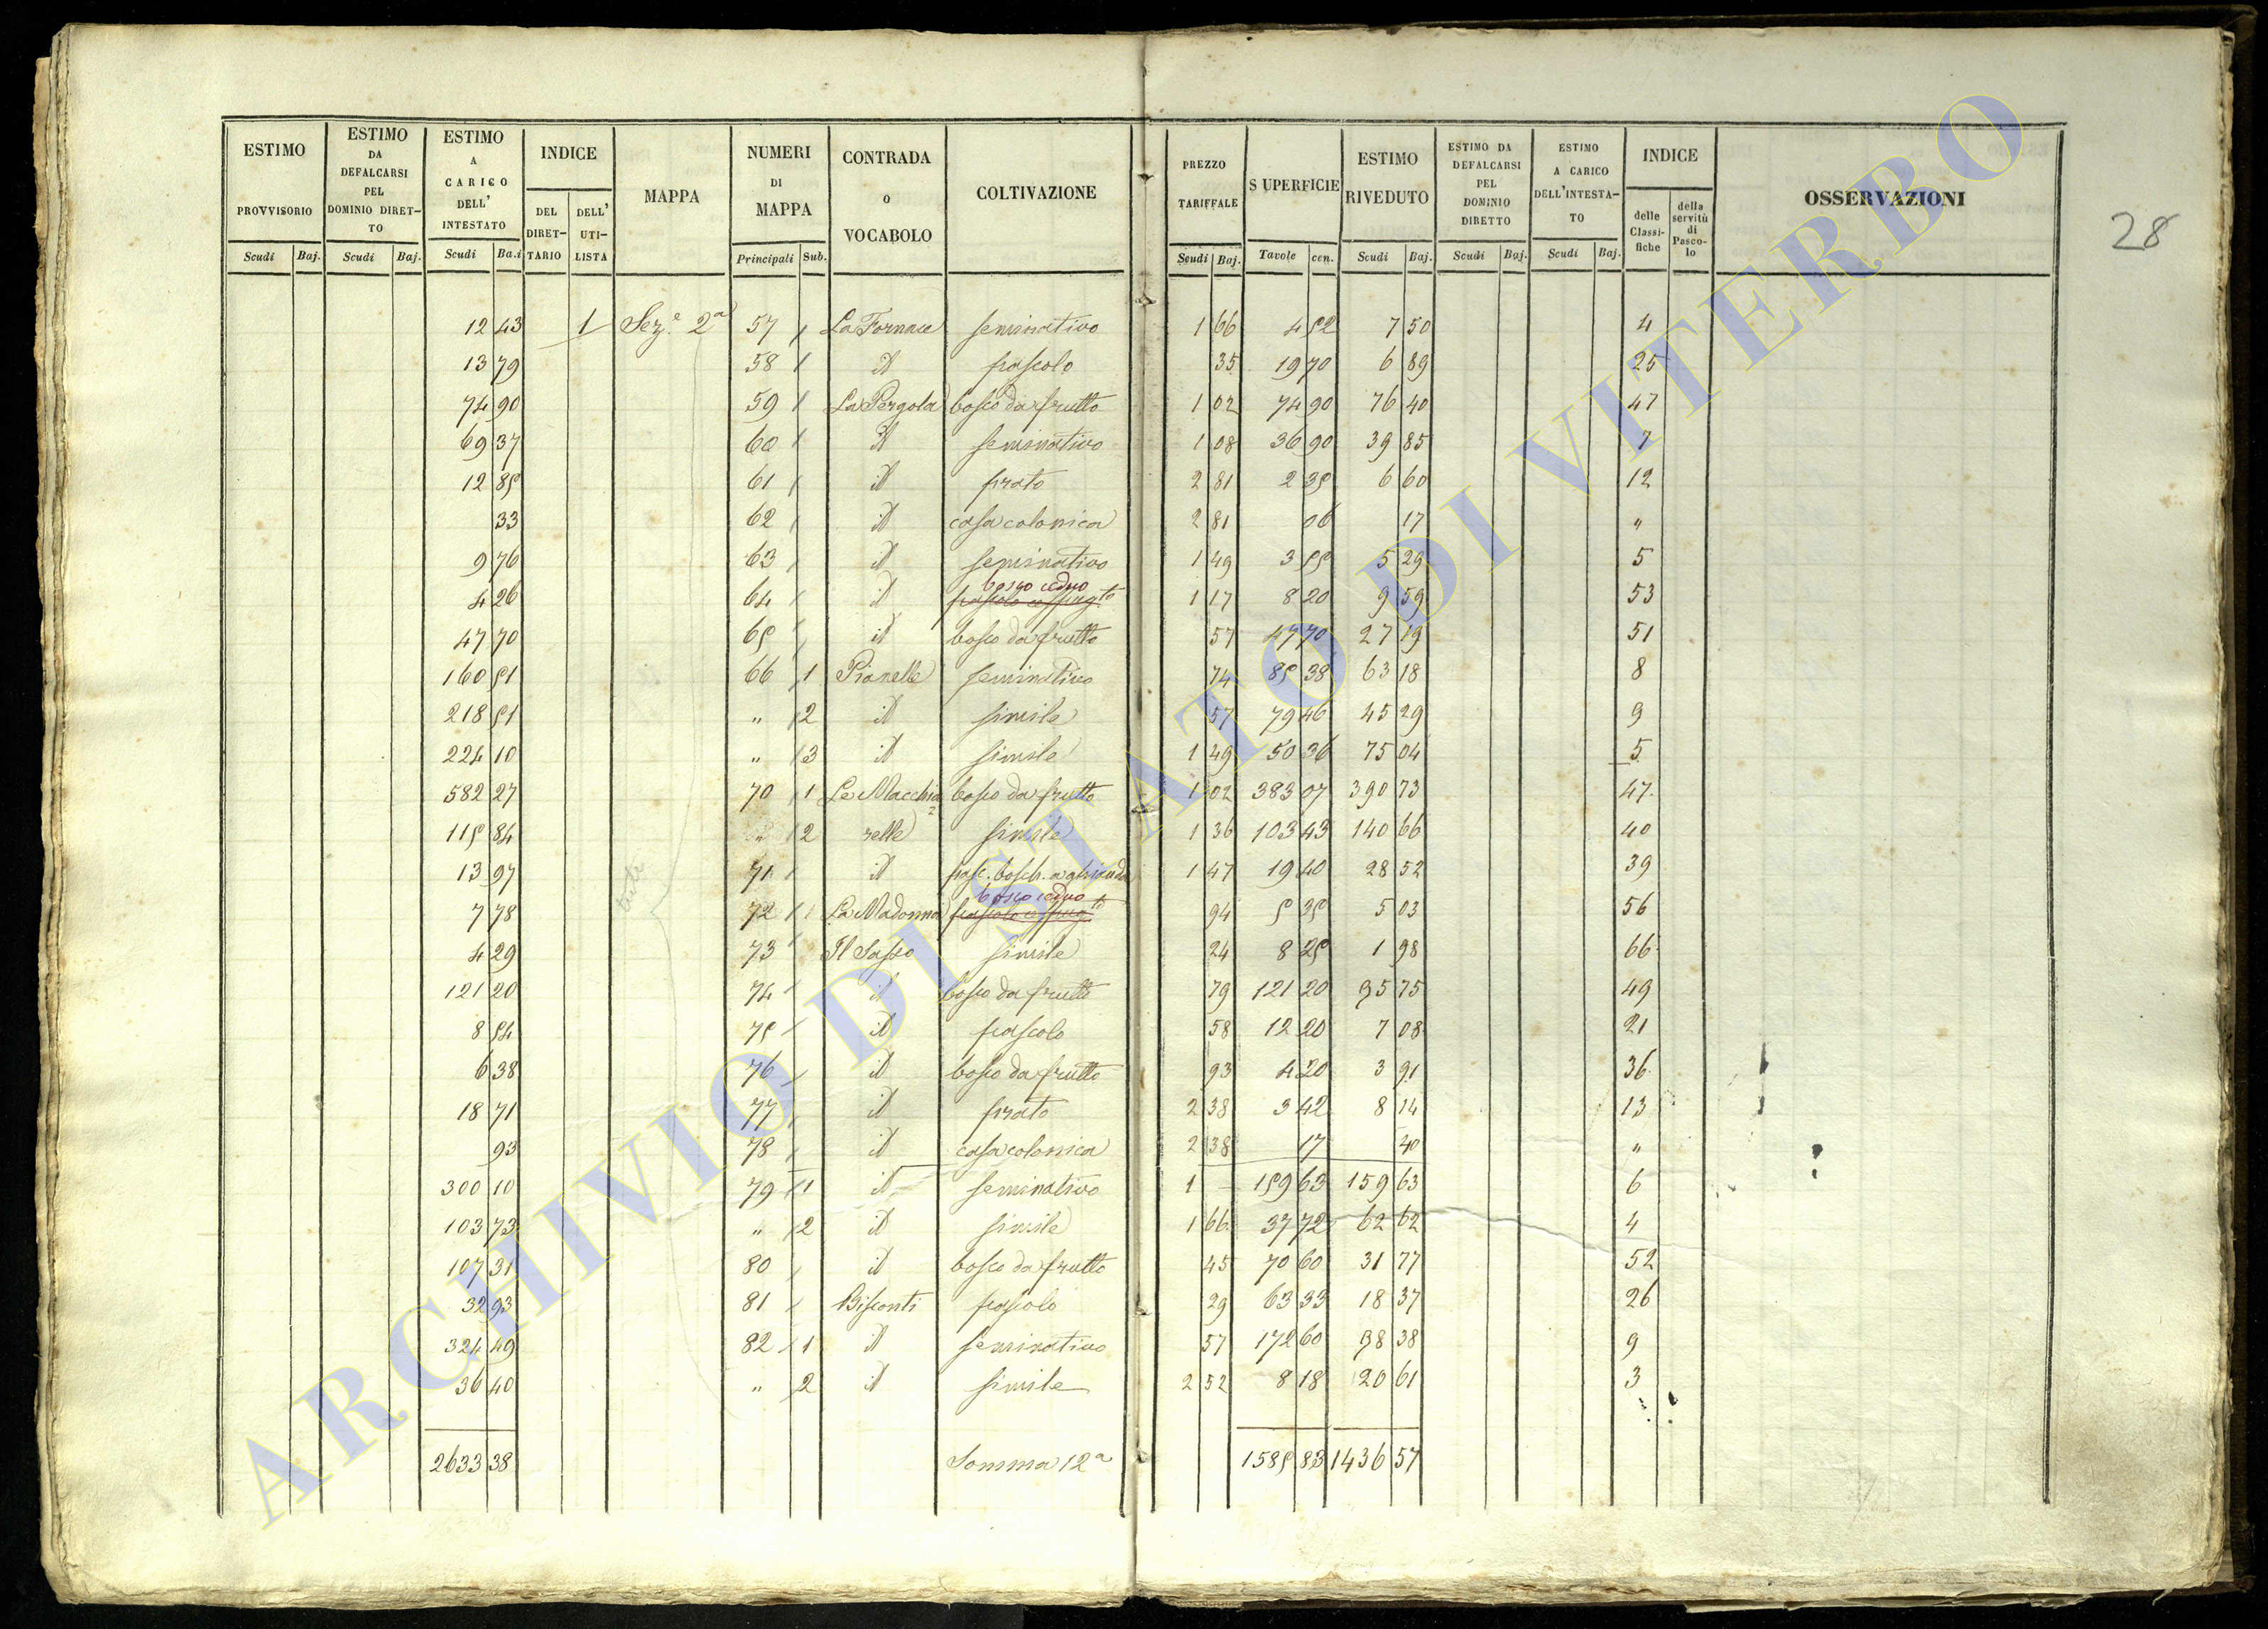 ESTIMO PROVVISORIO Scudi Baj.
ESTIMO DA DEFALCARSI PEL DOMINIO DIRETTO Scudi Baj.
ESTIMO A CARICO DELL' INTESTATO Scudi Ba.i
INDICE DEL DIRETTARIO DELL' UTILISTA
MAPPA
NUMERI DI MAPPA Principali Sub.
CONTRADA o VOCABOLO
COLTIVAZIONE
PREZZO TARIFFALE Scudi Baj.
SUPERFICIE Tavole cen.
ESTIMO RIVEDUTO Scudi Baj.
ESTIMO DA DEFALCARSI PEL DOMINIO DIRETTO Scudi Baj.
ESTIMO A CARICO DELL'INTESTATO Scudi Baj.
INDICE delle Classifiche della servitù di Pascolo
OSSERVAZIONI
28
12 43 1 Sez.e 2a 57 La Fornace seminativo 1 66 4 52 7 50 4
13 79 58 id pascolo 35 19 70 6 89 25
74 90 59 La Pergola bosco da frutto 1 02 74 90 76 40 47
69 37 60 id seminativo 1 08 36 90 39 85 7
12 85 61 id prato 2 81 2 35 6 60 12
33 62 id casa colonica 2 81 06 17 "
9 76 63 id seminativo 1 49 3 55 5 29 5
4 26 64 id bosco ceduo 1 17 8 20 9 59 53
47 70 65 id bosco da frutto 57 47 70 27 19 51
160 51 66 1 Pianelle seminativo 74 85 38 63 18 8
218 51 " 2 id simile 57 79 46 45 29 9
224 10 " 3 id simile 1 49 50 36 75 04 5
582 27 70 1 Le Macchia= bosco da frutto 1 02 383 07 390 73 47
115 84 " 2 relle simile 1 36 103 43 140 66 40
13 97 71 id pasc. bosch. a ghianda 1 47 19 40 28 52 39
7 78 72 La Madonna bosco ceduo 94 5 35 5 03 56
4 29 73 Il Sasso simile 24 8 25 1 98 66
121 20 74 id bosco da frutto 79 121 20 95 75 49
8 54 75 id pascolo 58 12 20 7 08 21
6 38 76 id bosco da frutto 93 4 20 3 91 36
18 71 77 id prato 2 38 3 42 8 14 13
93 78 id casa colonica 2 38 17 40 "
300 10 79 1 id seminativo 1 — 159 63 159 63 6
103 73 " 2 id simile 1 66 37 72 62 62 4
107 31 80 id bosco da frutto 45 70 60 31 77 52
32 93 81 Bisconti pascolo 29 63 33 18 37 26
324 49 82 1 id seminativo 57 172 60 98 38 9
36 40 " 2 id simile 2 52 8 18 20 61 3
2633 38 Somma 12a 1585 83 1436 57
ARCHIVIO DI STATO DI VITERBO